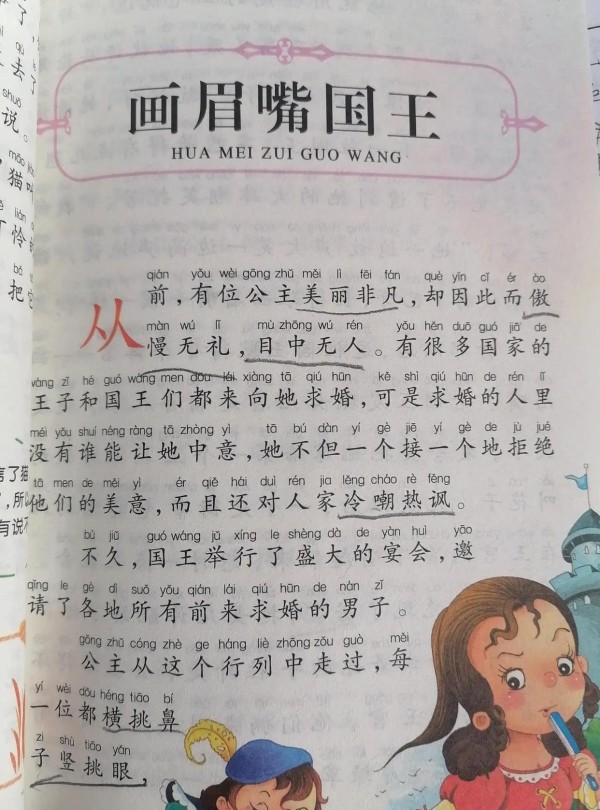 qù
去了
shuō
说。
画眉嘴国王
HUA MEI ZUI GUO WANG
qián yǒu wèi gōng zhǔ měi lì fēi fán què yīn cǐ ér ào
从前,有位公主美丽非凡,却因此而傲
màn wú lǐ mù zhōng wú rén yǒu hěn duō guó jiā de
慢无礼,目中无人。有很多国家的
wáng zǐ hé guó wáng men dōu lái xiàng tā qiú hūn kě shì qiú hūn de rén lǐ
王子和国王们都来向她求婚,可是求婚的人里
méi yǒu shuí néng ràng tā zhòng yì tā bú dàn yí gè jiē yí gè de jù jué
没有谁能让她中意,她不但一个接一个地拒绝
tā men de měi yì ér qiě hái duì rén jia lěng cháo rè fěng
他们的美意,而且还对人家冷嘲热讽。
bù jiǔ guó wáng jǔ xíng le shèng dà de yàn huì yāo
不久,国王举行了盛大的宴会,邀
qǐng le gè dì suǒ yǒu qián lái qiú hūn de nán zǐ
请了各地所有前来求婚的男子。
gōng zhǔ cóng zhè ge háng liè zhōng zǒu guò měi
公主从这个行列中走过,每
yí wèi dōu héng tiāo bí
一位都横挑鼻
zi shù tiāo yǎn
子竖挑眼,